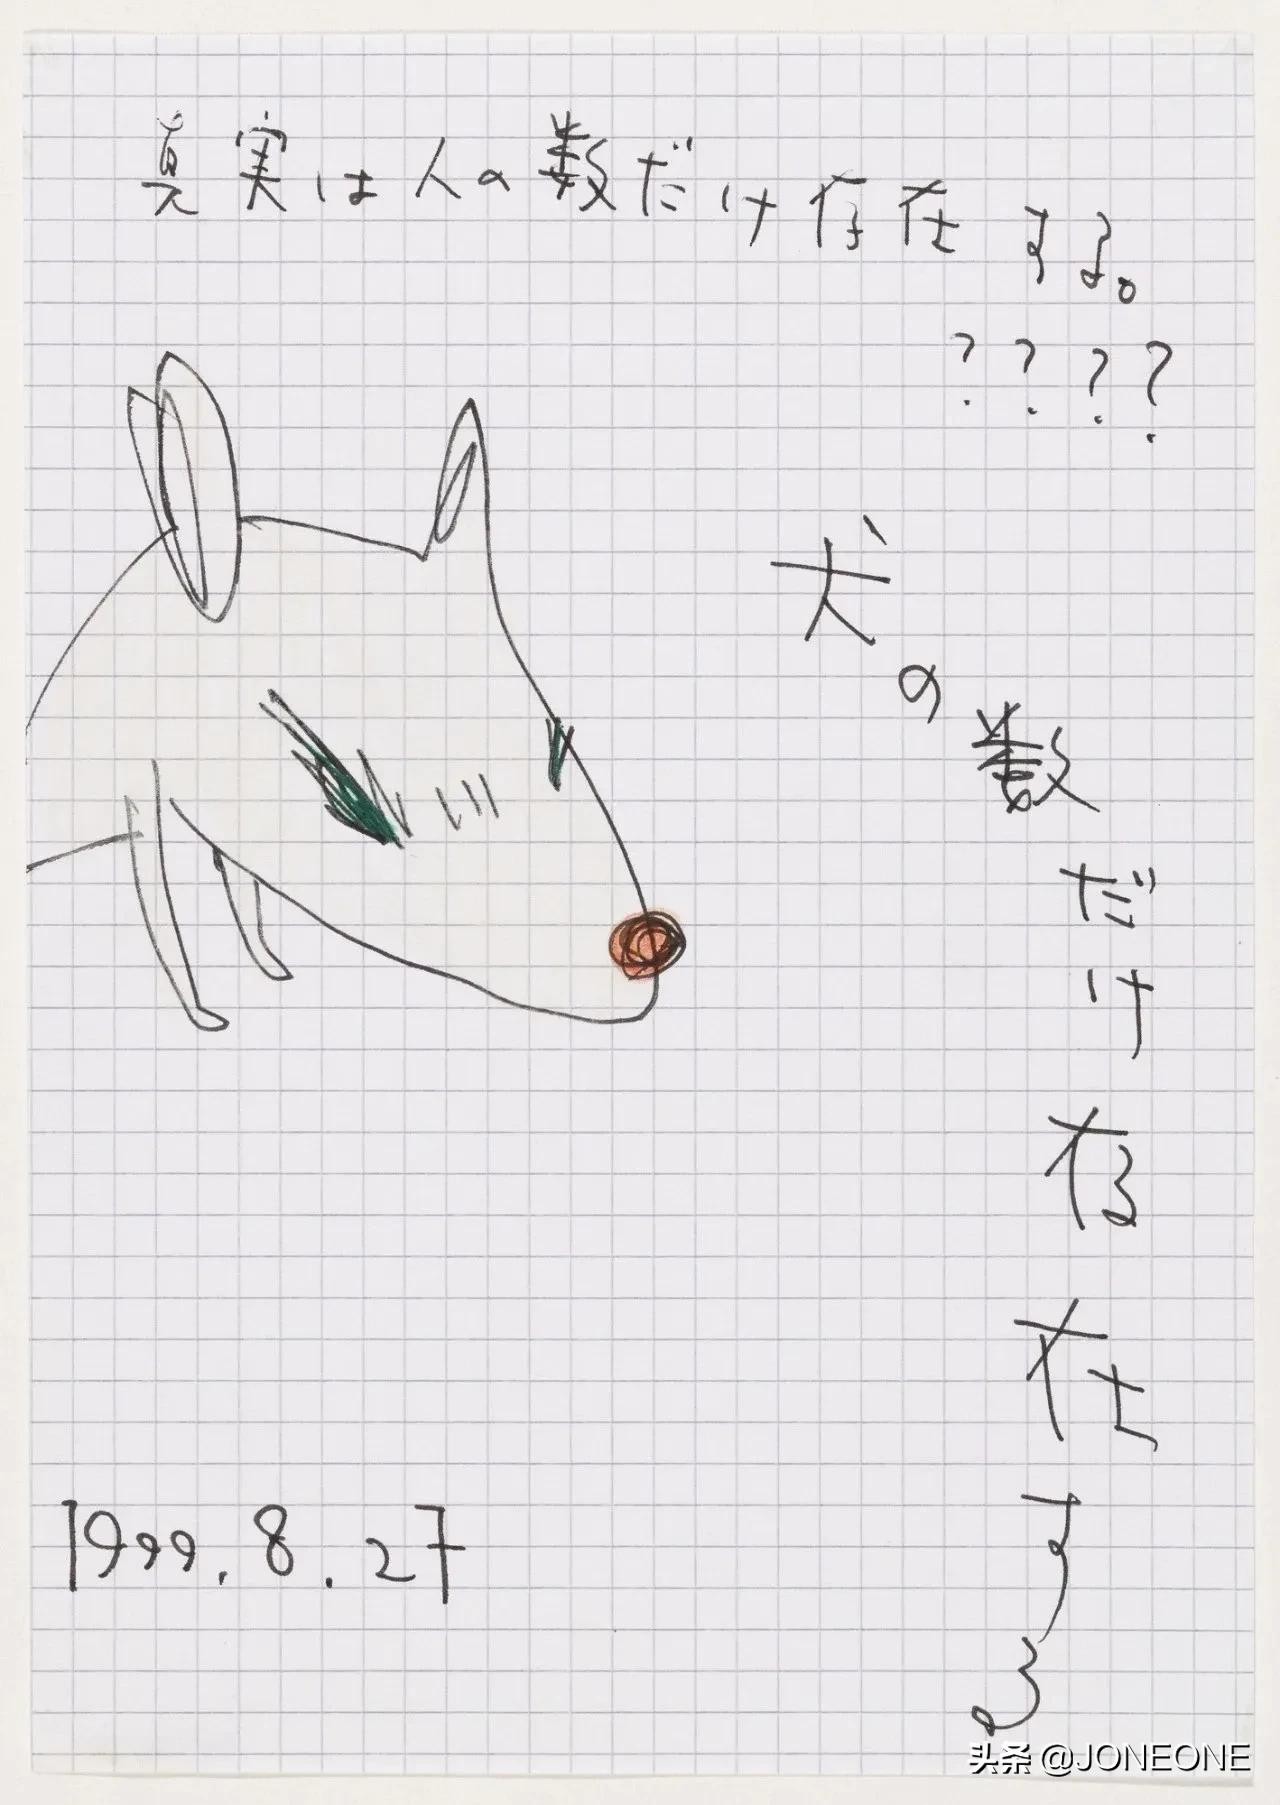 真実は人の数だけ存在する。
? ? ? ?
犬の数だけ存在する
1999.8.27
头条 @JONEONE